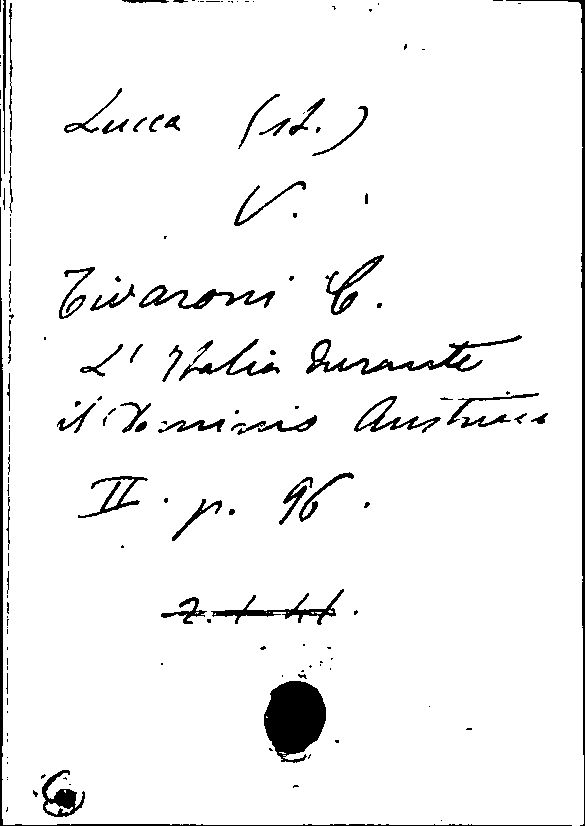 Lucca (st.)
V.
Tivaroni C.
L' Italia durante
il Dominio Austriaco
II. p. 96.